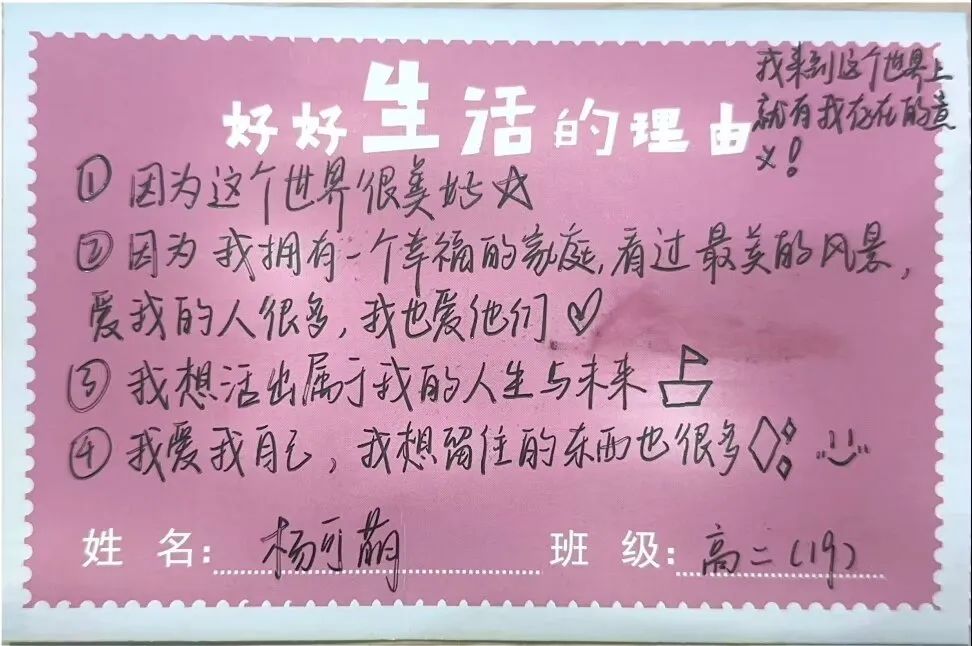 好好生活的理由
我来到这个世界上
就有我存在的意
义！
①因为这个世界很美好
②因为我拥有一个幸福的家庭，看过最美的风景，
爱我的人很多，我也爱他们
③我想活出属于我的人生与未来
④我爱我自己，我想留住的东西也很多
姓 名：杨可萌
班 级：高二(19)